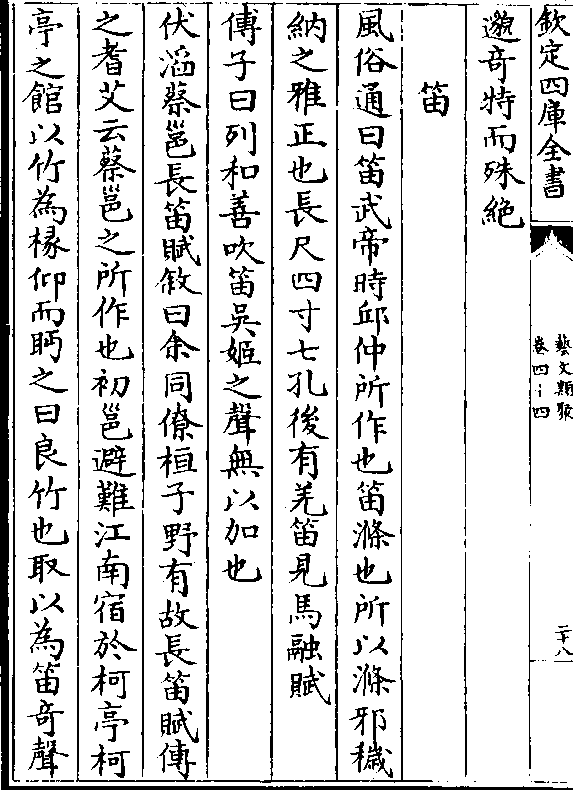 欽定四庫全書
藝文類聚
卷四十四
二十八
邈奇特而殊絶
笛
風俗通曰笛武帝時邱仲所作也笛滌也所以滌邪穢
納之雅正也長尺四寸七孔後有羌笛見馬融賦
傅子曰列和善吹笛吳姬之聲無以加也
伏滔蔡邕長笛賦敘曰余同僚桓子野有故長笛賦傳
之耆艾云蔡邕之所作也初邕避難江南宿於柯亭柯
亭之館以竹為椽仰而眄之曰良竹也取以為笛奇聲